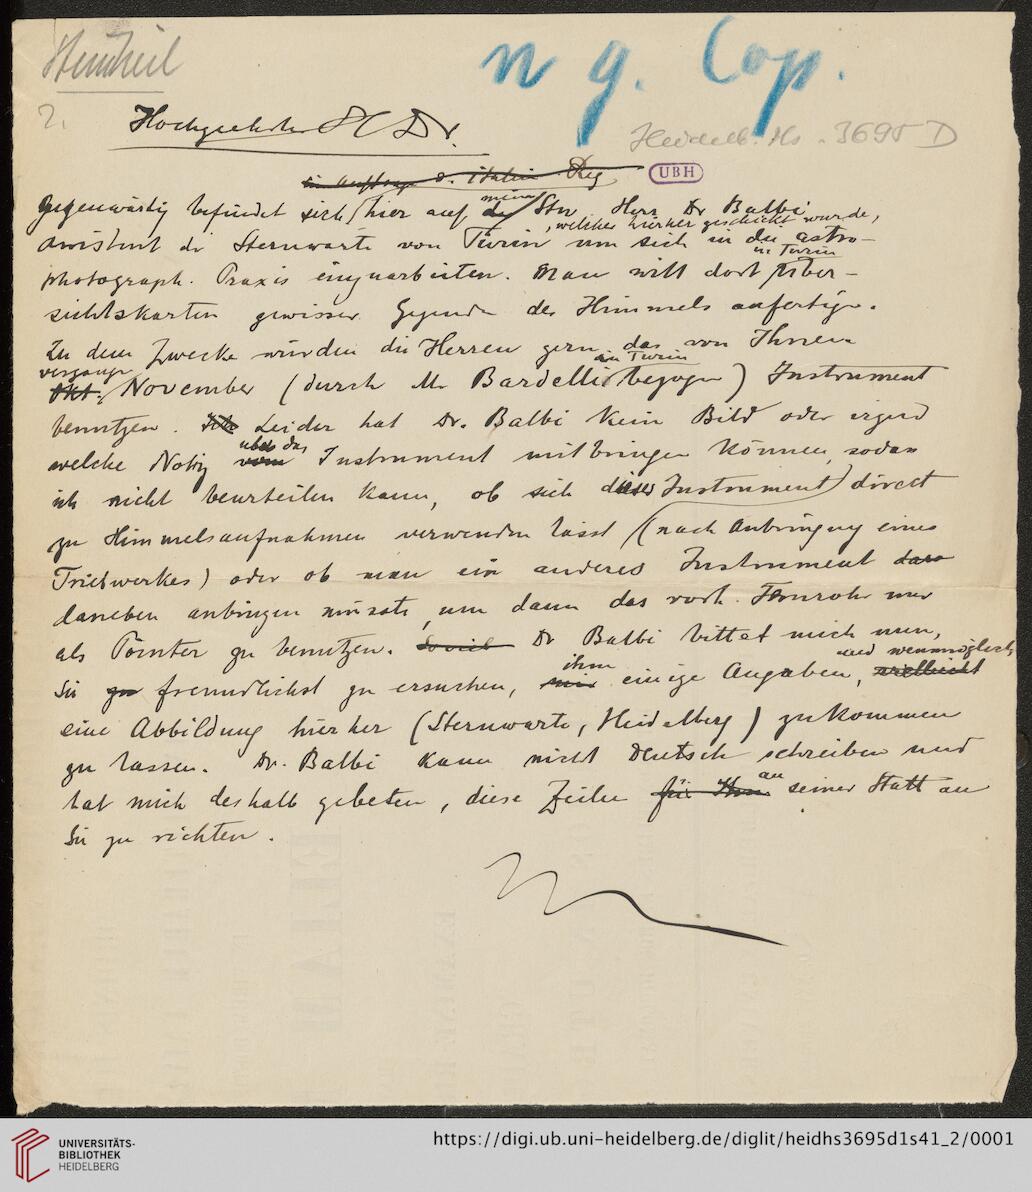 Steinheil
n g. Cop.
2.
Hochgeehrter H Dr.
Heidelb. Hs. 3695 D
im Auftrage d. italien. Reg
UBH
Gegenwärtig befindet sich hier auf meiner Stw Herr Dr Balbi
, welcher hierher geschickt wurde,
Assistent der Sternwarte von Turin um sich in die astro-
in Turin
photograph. Praxis einzuarbeiten. Man will dort Über-
sichtskarten gewisser Gegenden des Himmels anfertigen.
Zu dem Zwecke würden die Herren gern das von Ihnen
vergangn in Turin
Okt. November (durch Mr Bardelli bezogen) Instrument
benutzen. Ich Leider hat Dr. Balbi kein Bild oder irgend
über das
welche Notiz vom Instrument mitbringen können, sodass
ich nicht beurteilen kann, ob sich dieses Instrument direct
zu Himmelsaufnahmen verwenden lässt (nach Anbringung eines
Triebwerkes) oder ob man ein anderes Instrument
daneben anbringen müsste, um dann das vorh. Fernrohr nur
als Pointer zu benutzen. Soviel Dr Balbi bittet mich nun,
ihm und wenn möglich
Sie zu freundlichst zu ersuchen, mir einige Angaben, vielleicht
eine Abbildung hierher (Sternwarte, Heidelberg) zukommen
zu lassen. Dr. Balbi kann nicht Deutsch schreiben und
hat mich deshalb gebeten, diese Zeilen für Ihn an seiner Statt an
Sie zu richten.
UNIVERSITÄTS-
BIBLIOTHEK
HEIDELBERG
https://digi.ub.uni-heidelberg.de/diglit/heidhs3695d1s41_2/0001